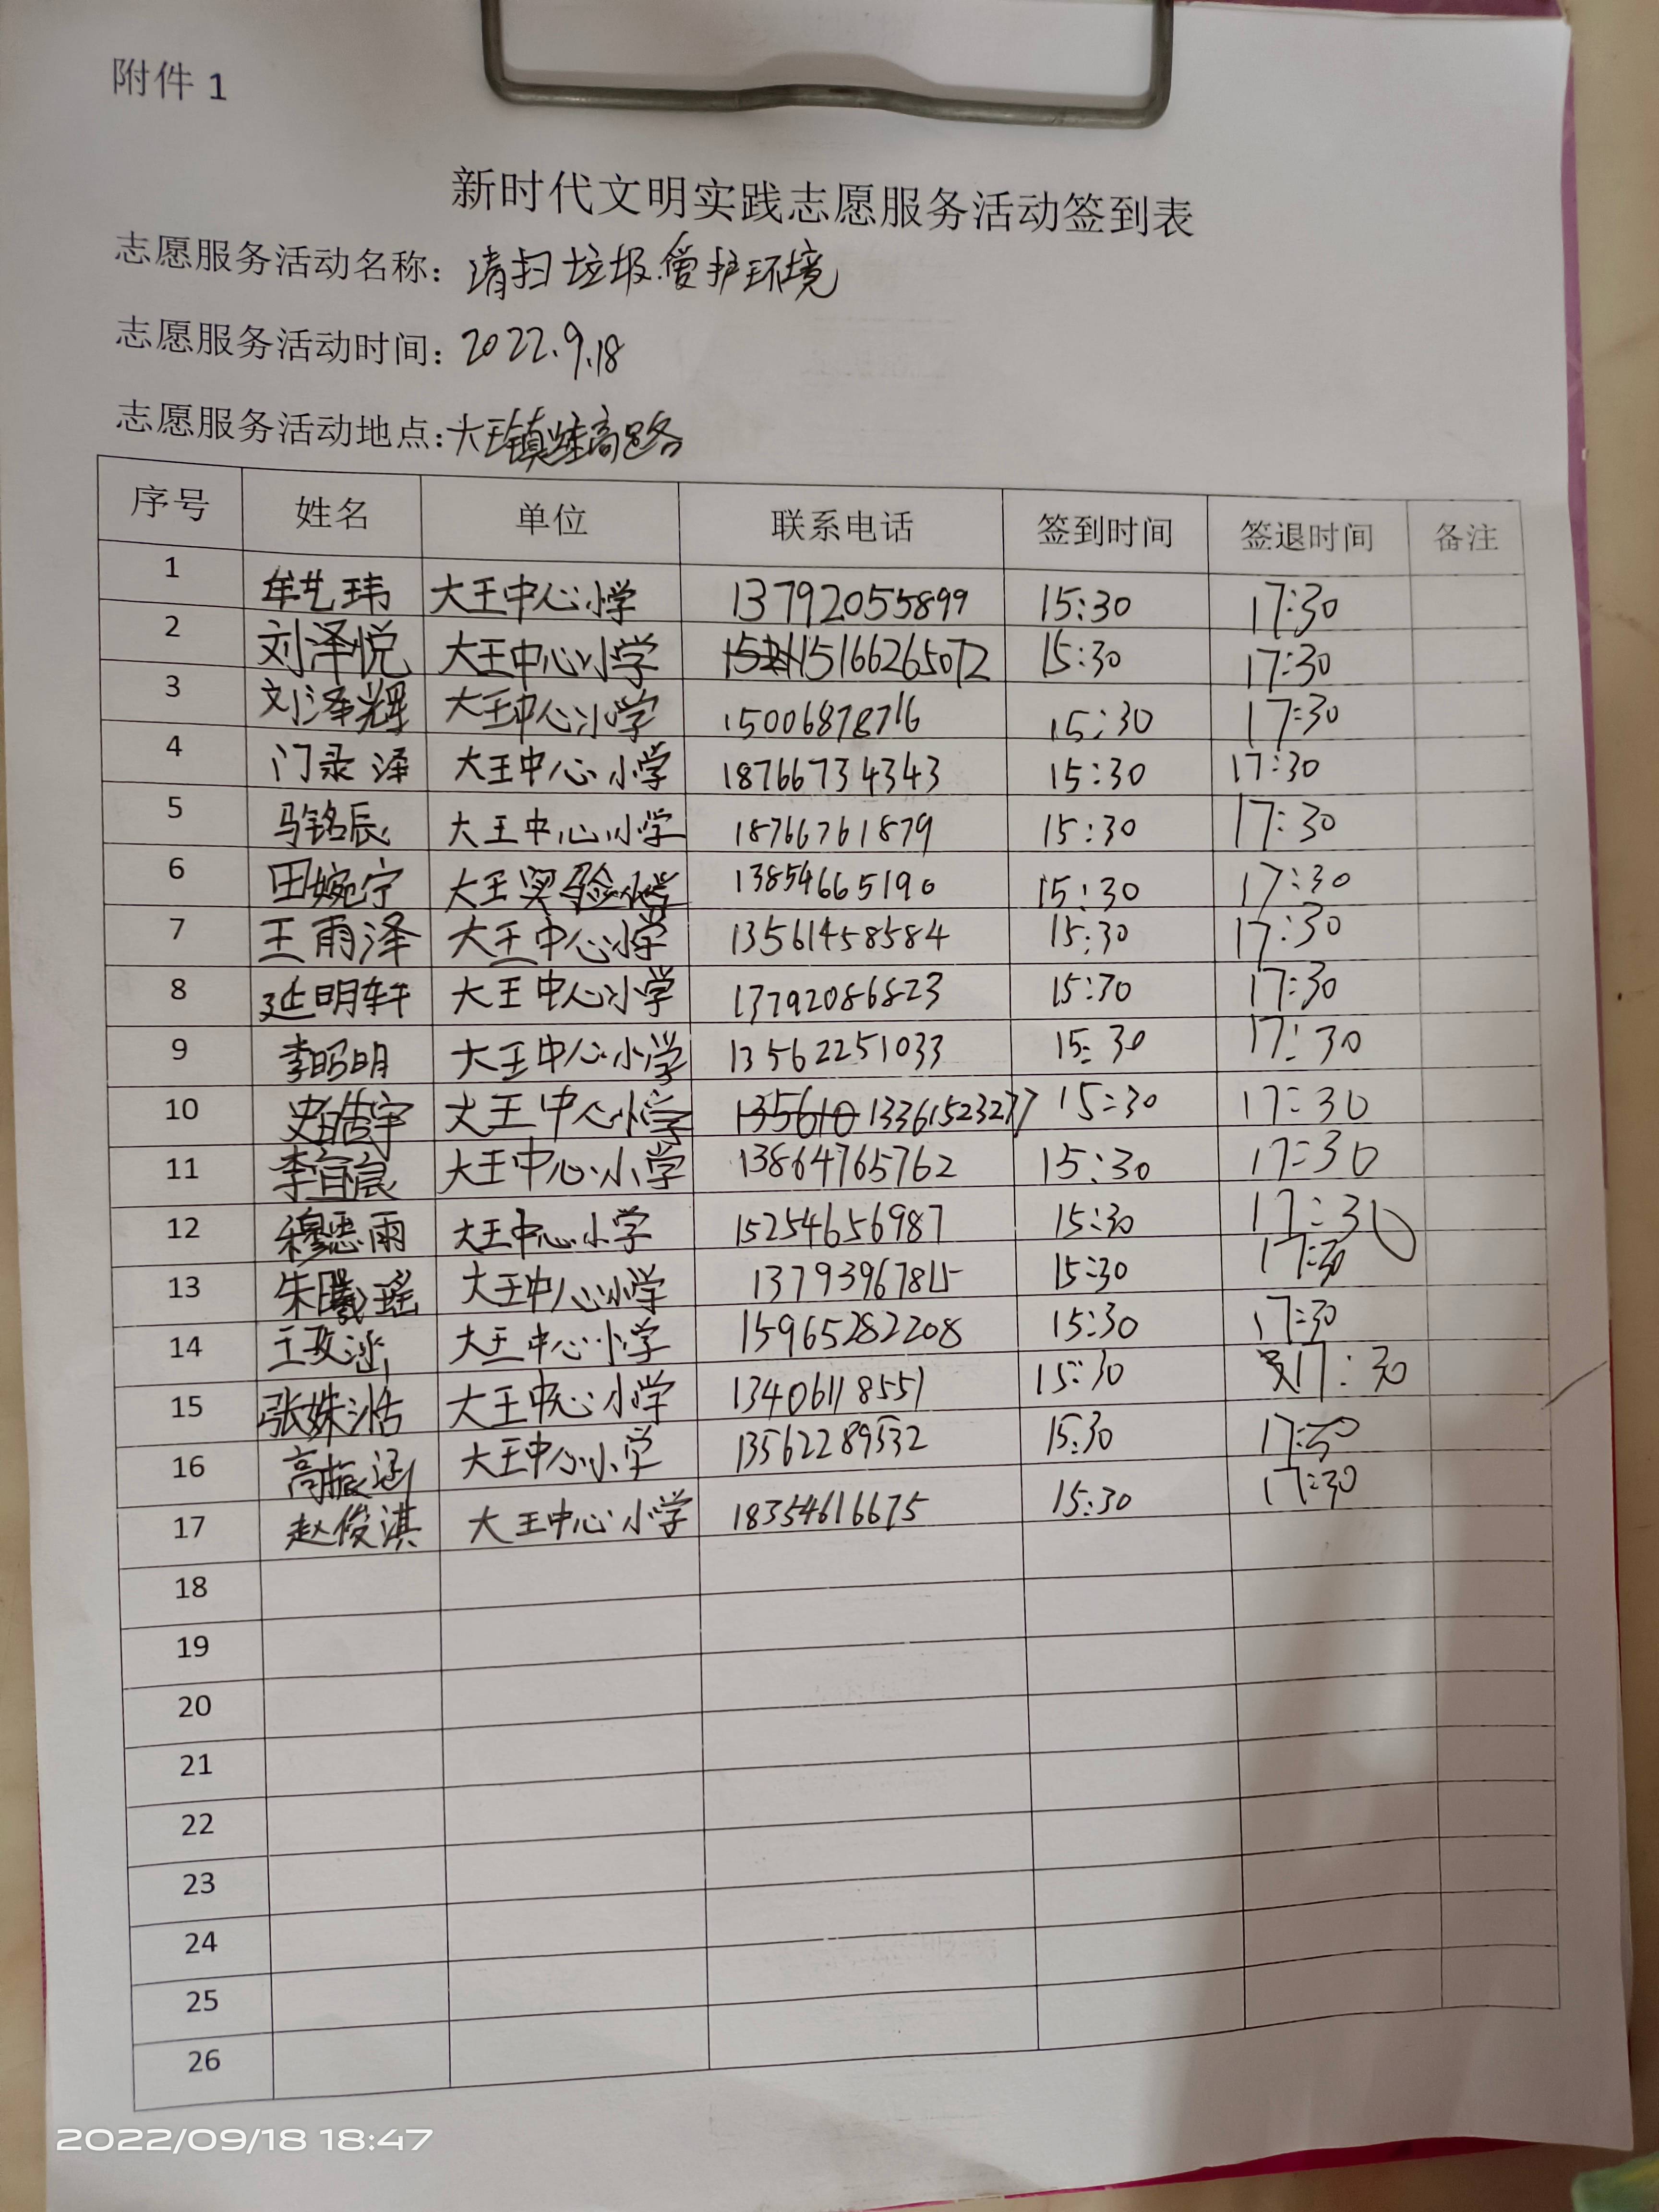 附件 1
新时代文明实践志愿服务活动签到表
志愿服务活动名称：清扫垃圾.爱护环境
志愿服务活动时间：2022.9.18
志愿服务活动地点：大王镇 高路
序号 姓名 单位 联系电话 签到时间 签退时间 备注
1 牟艺玮 大王中心小学 13792055899 15:30 17:30
2 刘泽悦 大王中心小学 15166265072 15:30 17:30
3 刘泽辉 大王中心小学 15006878716 15:30 17:30
4 门录泽 大王中心小学 18766734343 15:30 17:30
5 马铭辰 大王中心小学 18766761879 15:30 17:30
6 田婉宁 大王实验小学 13854665190 15:30 17:30
7 王雨泽 大王中心小学 13561458584 15:30 17:30
8 延明轩 大王中心小学 13792086823 15:30 17:30
9 李昭明 大王中心小学 13562251033 15:30 17:30
10 史皓宇 大王中心小学 135610 13361523277 15:30 17:30
11 李宜宸 大王中心小学 13864765762 15:30 17:30
12 穆思雨 大王中心小学 15254656987 15:30 17:30
13 朱曦瑶 大王中心小学 13793967815 15:30 17:30
14 大王中心小学 15965282208 15:30 17:30
15 张姝浩 大王中心小学 13406118551 15:30 17:30
16 高振涵 大王中心小学 13562289532 15:30 17:30
17 赵俊淇 大王中心小学 18354616675 15:30 17:30
18
19
20
21
22
23
24
25
26
2022/09/18 18:47